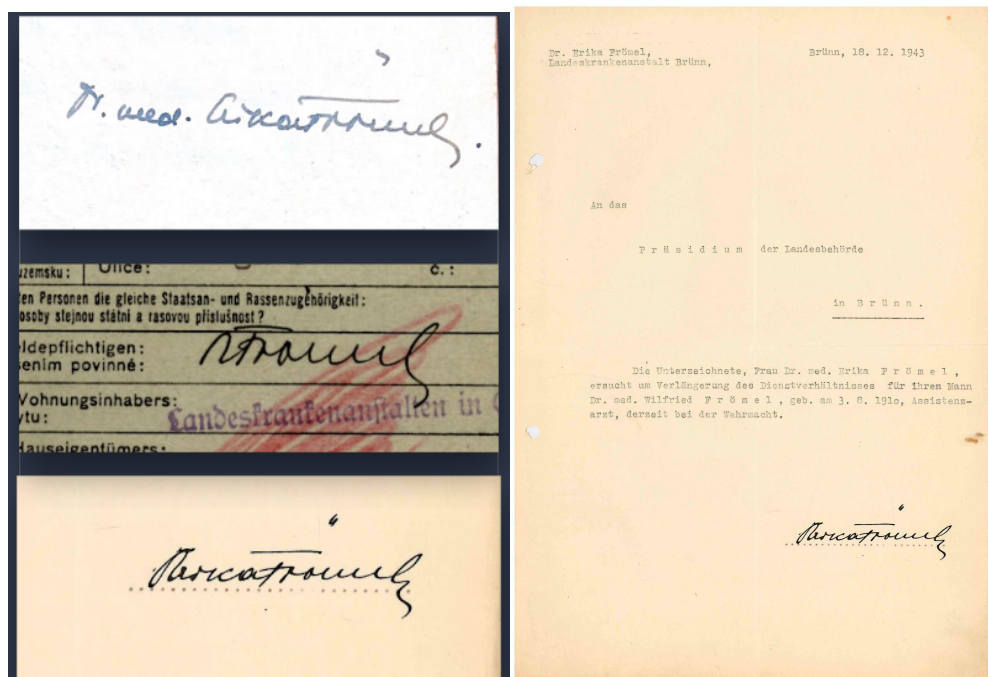 Dr. med. Erika Frömel.
uzemsku:
Ulice:
č.:
ten Personen die gleiche Staatsan- und Rassenzugehörigkeit:
osoby stejnou státní a rasovou příslušnost?
ldepflichtigen:
šením povinné:
Frömel
Wohnungsinhabers:
ytu:
Landeskrankenanstalten in
Hauseigentümers:
Erika Frömel
Dr. Erika Frömel,
Landeskrankenanstalt Brünn,
Brünn, 18. 12. 1943
An das
P r ä s i d i u m der Landesbehörde
in B r ü n n .
Die Unterzeichnete, Frau Dr. med. Erika F r ö m e l ,
ersucht um Verlängerung des Dienstverhältnisses für ihren Mann
Dr. med. Wilfried F r ö m e l , geb. am 3. 8. 191o, Assistenz-
arzt, derzeit bei der Wehrmacht.
Erika Frömel